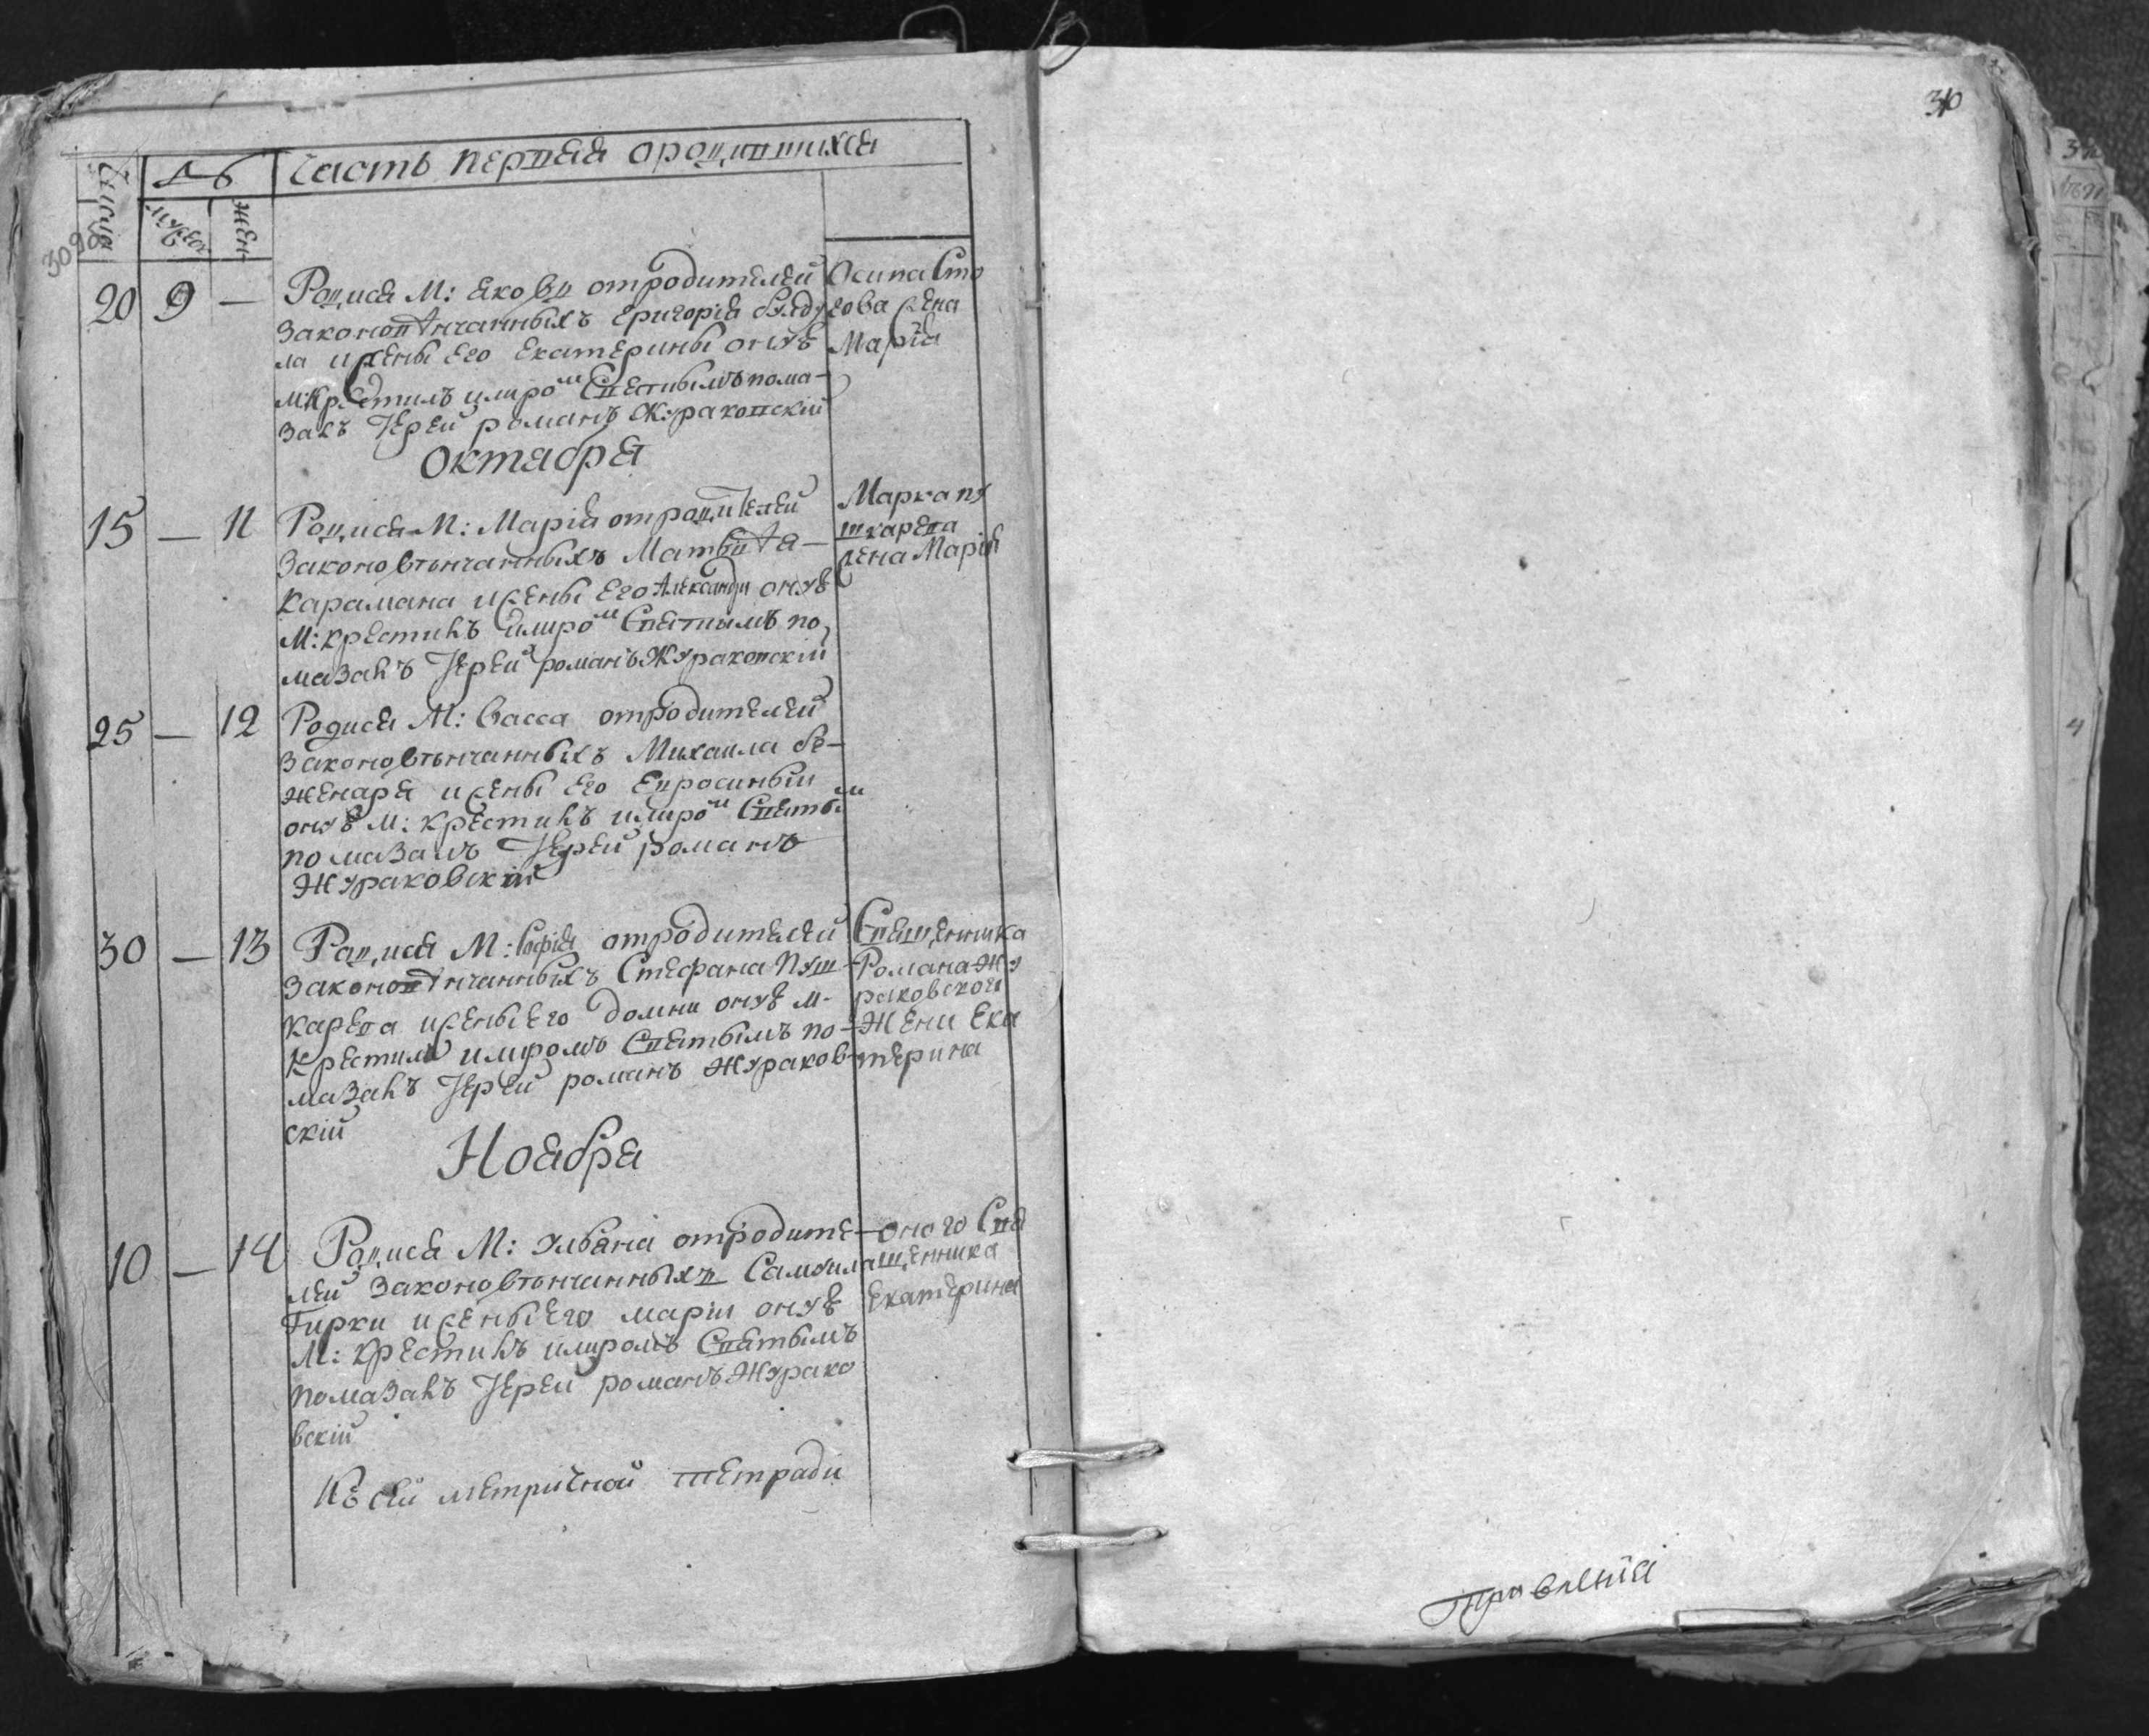 Часть первая ородившихся
Числа
№
мужес
жен
309об
20 9 — Родися М: Яковъ отродителей
законовѣнчанныхъ Григорія
ла ижены Его Екатерины онуЂ
М:Крестилъ имиром Святымъ пома-
залъ Іерей романъ Жураковскій
Осипа Сто
гова жена
Марія
Октабря
15 — 11 Родися М: Марія отродителей
законовѣнчанныхъ Матвѣя
карамана ижены Его Александри онуЂ
М: крестилъ имиром Святымъ по
мазалъ Іерей романъ Жураковскій
Марка пу
шкарева
жена Марія
25 — 12 Родися М: Васса отродителей
законовѣнчанныхъ Михаила бе-
женаря ижены Его Епросиныи
онуЂ М: крестилъ имиром Святым
помазалъ Іерей романъ
Жураковскій
30 — 13 Родися М: Софія отродителей
законовѣнчанныхъ Стефана Пуш
карева ижены Его домни онуЂ М-
крестилъ имиромъ Святымъ по-
мазалъ Іерей романъ Жураков
скій
Священника
Романа Жу
раковского
Жени Ека
терина
Ноабря
10 — 14 Родися М: Ульяна отродите
лей законовѣнчанныхъ Самуила
Гирки ижены Его марiи онуЂ
М: крестилъ имиромъ Святымъ
помазалъ Іерей романъ Журако
вскій
оного Свя
щенника
Екатерина
Къ сей метричной тетради
310
Правленія